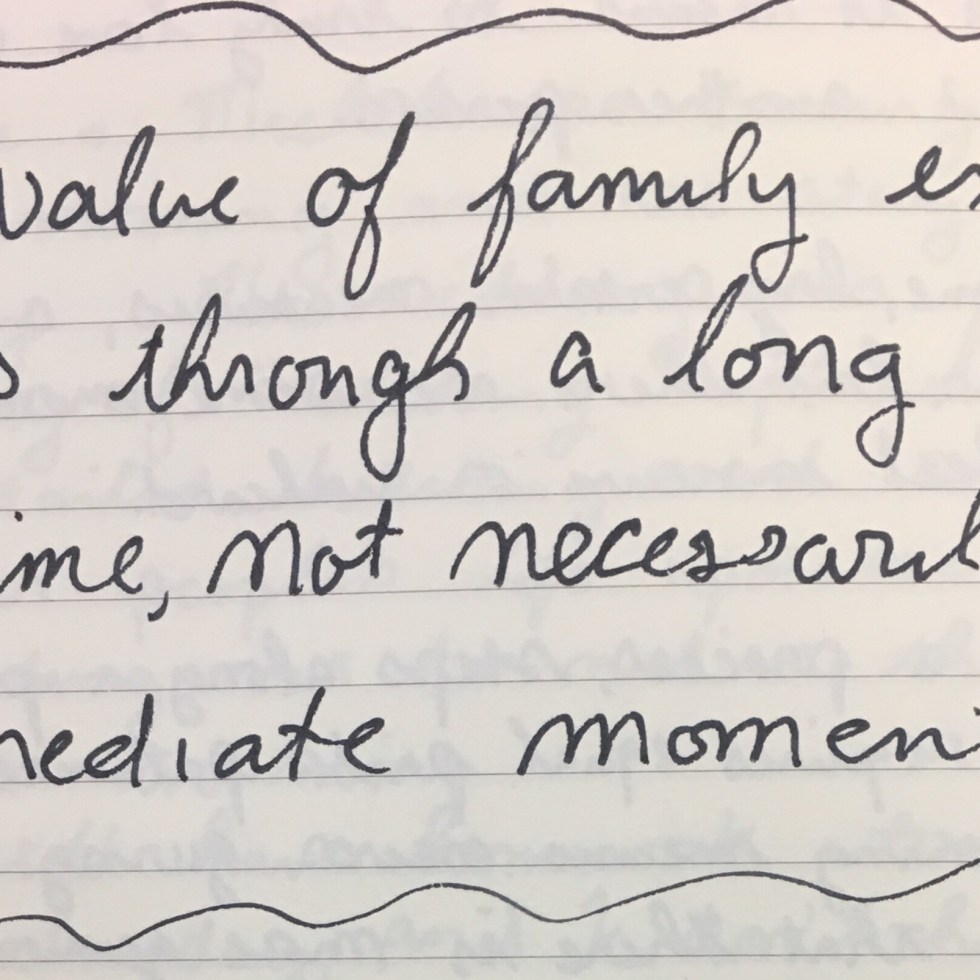 value of family
through a long
ime, not necessaril
mediate momen